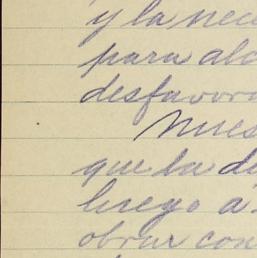 y la nec
para alc
desfavora
Nues
que ha de
luego a
obrar con